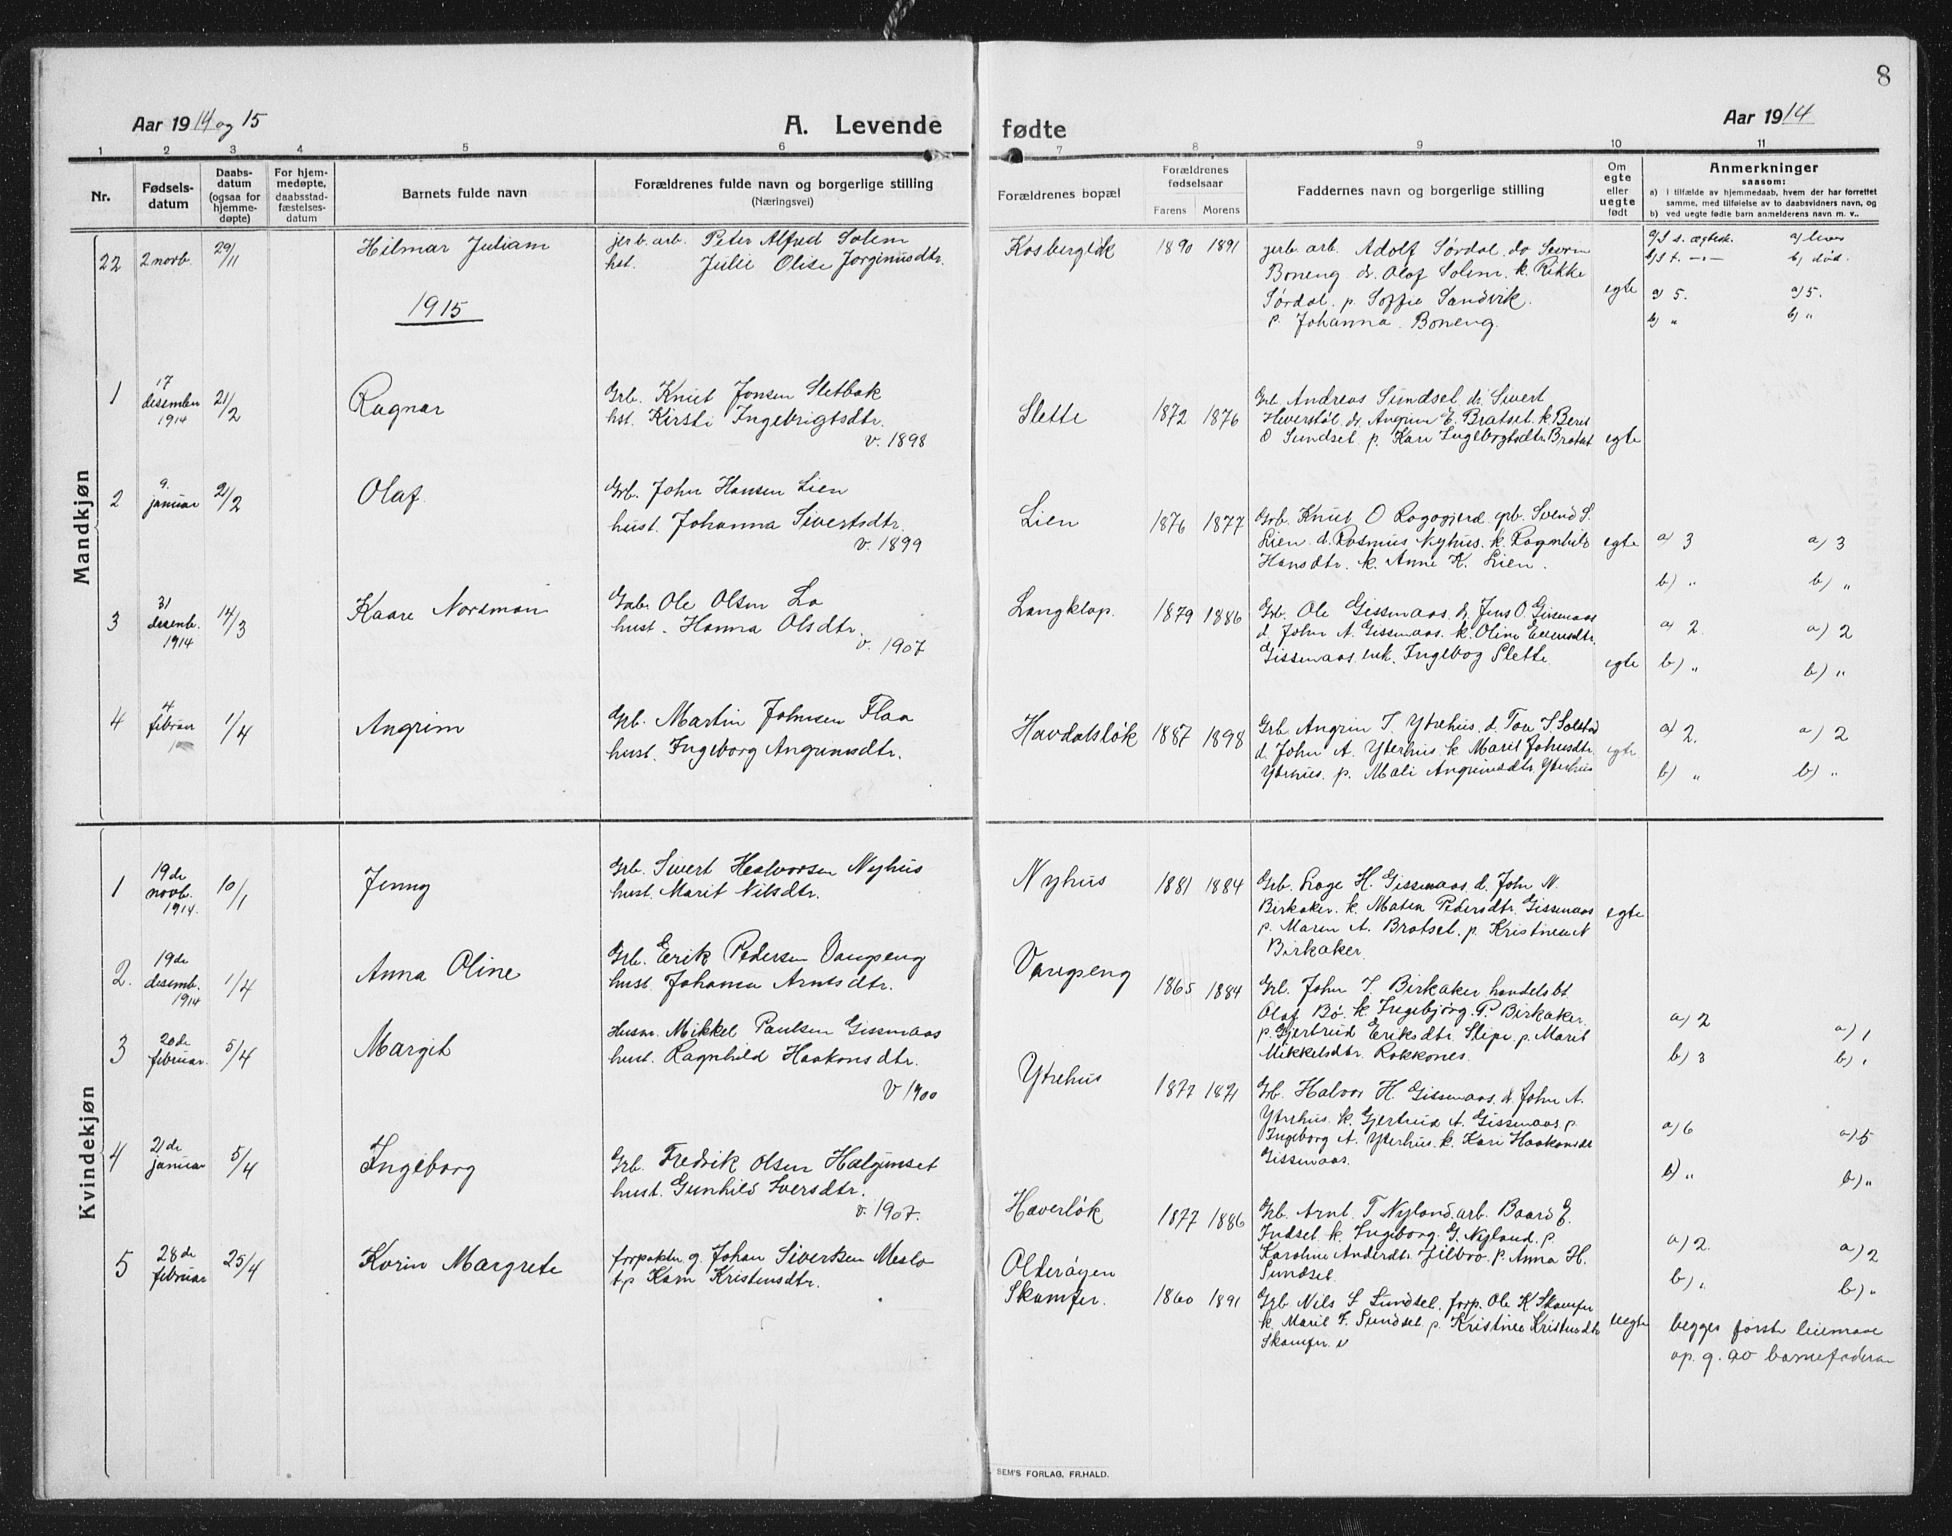 8
Aar 1914 og 15
A. Levende
fødte
Aar 1914
1 2 3 4 5 6 7 8 9 10 11
Nr.
Fødsels-
datum
Daabs-
datum
(ogsaa for
hjemme-
døpte)
For hjem-
medøpte,
daabsstad-
fæstelses-
datum
Barnets fulde navn
Forældrenes fulde navn og borgerlige stilling
(Næringsvei)
Forældrenes bopæl
Forældrenes
fødselsaar
Farens Morens
Faddernes navn og borgerlige stilling
Om
egte
eller
uegte
født
Anmerkninger
saasom:
a) i tilfælde av hjemmedaab, hvem der har forrettet
samme, med tilføielse av to daabsvidners navn, og
b) ved uegte fødte barn anmelderens navn m. v..
Mandkjøn
22 2 novb. 29/11 Hilmar Juliam
jerb. arb. Peter Alfred Solem
hst. Julie Olise Jorginusdtr.
1890 1891
jerb. arb. Adolf Sørdal do
Boneng dr. Olaf Solem k. Rikke
Sørdal p. Soffie Sandvik.
p. Johanna Boneng.
egte
a) 5. a) 5.
b) „ b) „
1915
1 17 desember 1914 21/2 Ragnar
Grb. Knut Jonsen Sletbak
hst. Kirsti Ingebrigtsdtr.
v. 1898
Slette 1872 1876
Grb. Andreas Sundset dr. Sivert
Heverstøl dr. Angrim E. Bratset k Berit
O Sundset p. Kari Ingebrigtsdtr. Bratset
egte
2 9. januar 21/2 Olaf
Grb. John Hansen Lien
hust. Johanna Sivertsdtr.
v. 1899
Lien 1876 1877
Grb. Knut O Rogogjerd grb. Svend S.
Lien d. Rasmus Nyhus. k. Ragnhild
Hansdtr. k. Anne K. Lien.
egte
a) 3 a) 3
b) „ b) „
3 31 desemb. 1914 14/3 Kaare Nordman
Ole Olsen Lo
hust. Hanna Olsdtr.
v. 1907
Langklop. 1879 1886
Grb. Ole Gissmaas d. Jens O. Gissmaas
d. John A. Gissmaas k. Oline Ellensdtr.
Gissmaas enk. Ingeborg Slette.
egte
a) 2. a) 2
b) „ b) „
4 4 februar 1/4 Angrim
Grb. Martin Johnsen Flaa
hust. Ingeborg Angrimsdtr.
Havdalsløk 1887 1898
Grb Angrim J. Ytrehus. d. Tore J. Solstad
d. John A. Yterhus k Marit Johnsdtr
Ytrehus. p. Mali Angrimsdtr. Yterhus
egte
a) 2. a) 2
b) „ b) „
Kvindekjøn
1 19de novb. 1914. 10/1 Jenny
Grb. Sivert Halvorsen Nyhus
hust. Marit Nilsdtr.
Nyhus 1881 1884
Grb. Lage H. Gissmaas. d. John N.
Birkaker. k. Maten Pedersdtr. Gissmaas
p. Maren A. Bratset. p. Kristine N
Birkaker.
egte
2. 19de desemb. 1914 1/4 Anna Oline
Grb. Erik Pedersen Vangseng
hust. Johanna Arntsdtr.
Vangseng 1865 1884
Grb. John I. Birkaker handelsbt.
Olaf Bø. k. Ingebjørg P. Birkaker.
p. Gjertrud Eriksdtr. p. Marit
Mikkelsdtr. Rokkones.
a) 2 a) 1
b) 3 b) „
3 20de februar. 5/4 Margit
Husm. Mikkel Paulsen Gissmaas
hust. Ragnhild Haakonsdtr.
v 1900
Ytrehus 1877 1871
Grb. Halvor H. Gissmaas. d. John A.
Ytrehus. k. Gjertrud A. Gissmaas. p
Ingeborg A. Yterhus. k. Kari Haakonsdt
Gissmaas.
a) 6 a) 5
b) „ b) „
4 21de januar 5/4 Ingeborg
Grb. Fredrik Olsen Hælgünset
hust. Gunhild Iversdtr.
v. 1907.
Haverløk 1877 1886
Grb. Arnt T Nyland. arb. Baard E.
Indset k. Ingeborg G. Nyland. p.
Karoline Andersdtr. p. Anna H.
Sundset.
a) 2. a) 2
b) „ b) „
5 28de februar 25/4 Karin Margrete
forpakter g. Johan Sivertsen Meslo
tp Karn Kristensdtr.
Olderøyen
Skamfer. 1860 1891
Grb. Nils S Sundset. forp. Ole K Skamfer
k. Marit I. Sundset. p. Kristine Kristensdtr
Skamfer.
uegte
begges første leiemaal
op. g. av barnefaderen
SEM'S FORLAG, FR.HALD.